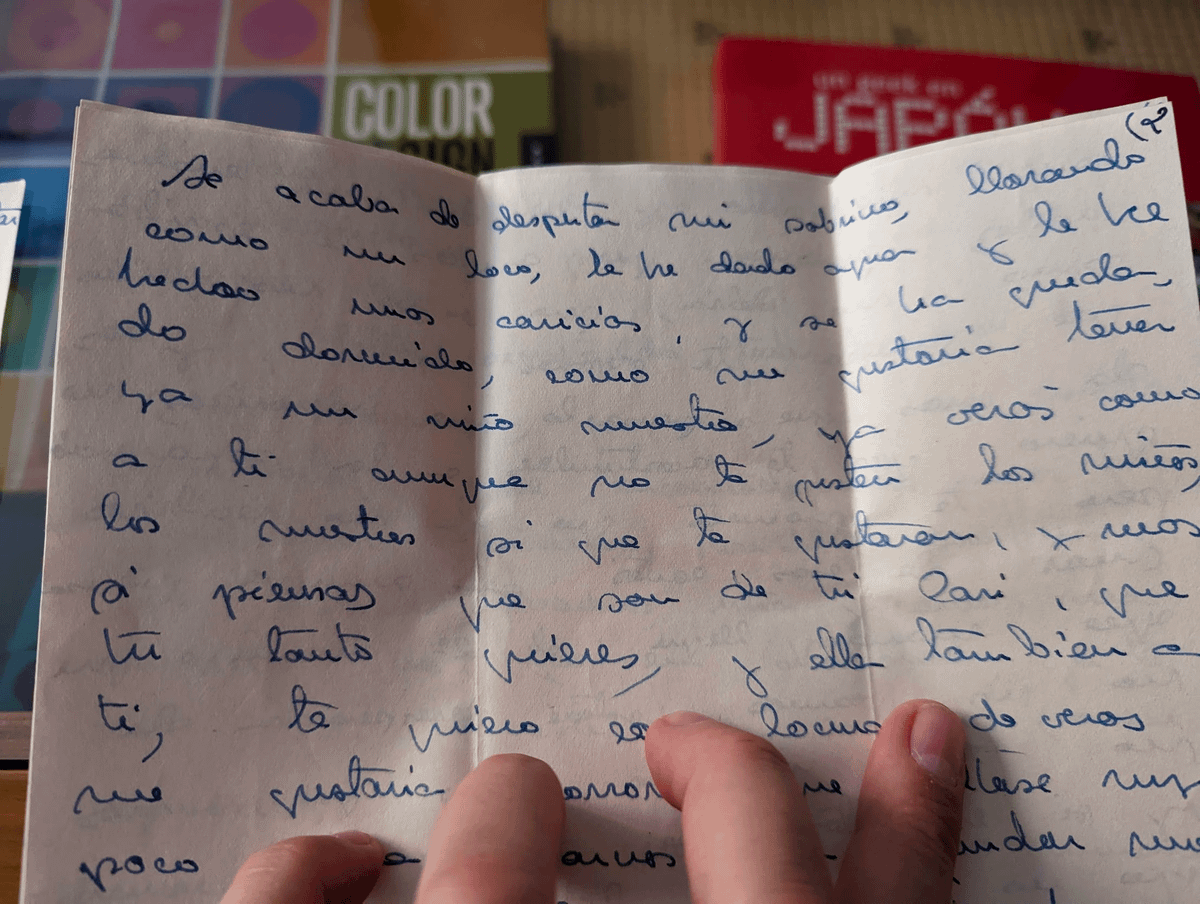 COLOR
un geek en
JAPÓN
(2
Se acaba de despertar mi sobrino, llorando
como un loco, le he dado agua y le he
hecho unas caricias, y se ha queda-
do dormido, como me gustaria tener
ya un niño nuestro, ya veras como
a ti aunque no te gusten los niños,
los nuestros si que te gustaran, y mas
si piensas que son de tu Cari, que
tu tanto quieres, y ella tambien a
ti, te quiero con locura de veras
me gustaria que
poco